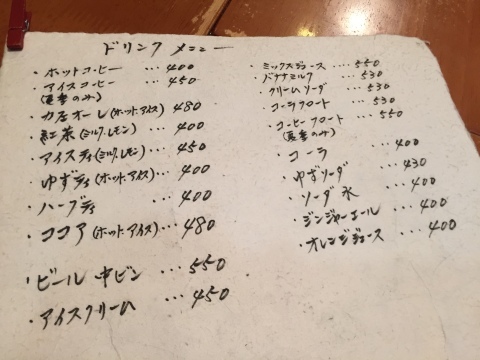 ドリンク メニュー
・ホットコーヒー … 400
・アイスコーヒー … 450
(夏季のみ)
・カフェオーレ(ホット.アイス) 480
・紅茶(ミルク.レモン) … 400
・アイスティ(ミルク.レモン) … 450
・ゆずティ(ホット.アイス) … 400
・ハーブティ … 400
・ココア(ホット.アイス) … 480
・ビール 中ビン … 550
・アイスクリーム … 450
・ミックスジュース … 550
・バナナミルク … 530
・クリームソーダ … 530
・コーラフロート … 530
・コーヒーフロート … 550
(夏季のみ)
・コーラ … 400
・ゆずソーダ … 430
・ソーダ水 … 400
・ジンジャーエール … 400
・オレンジジュース … 400